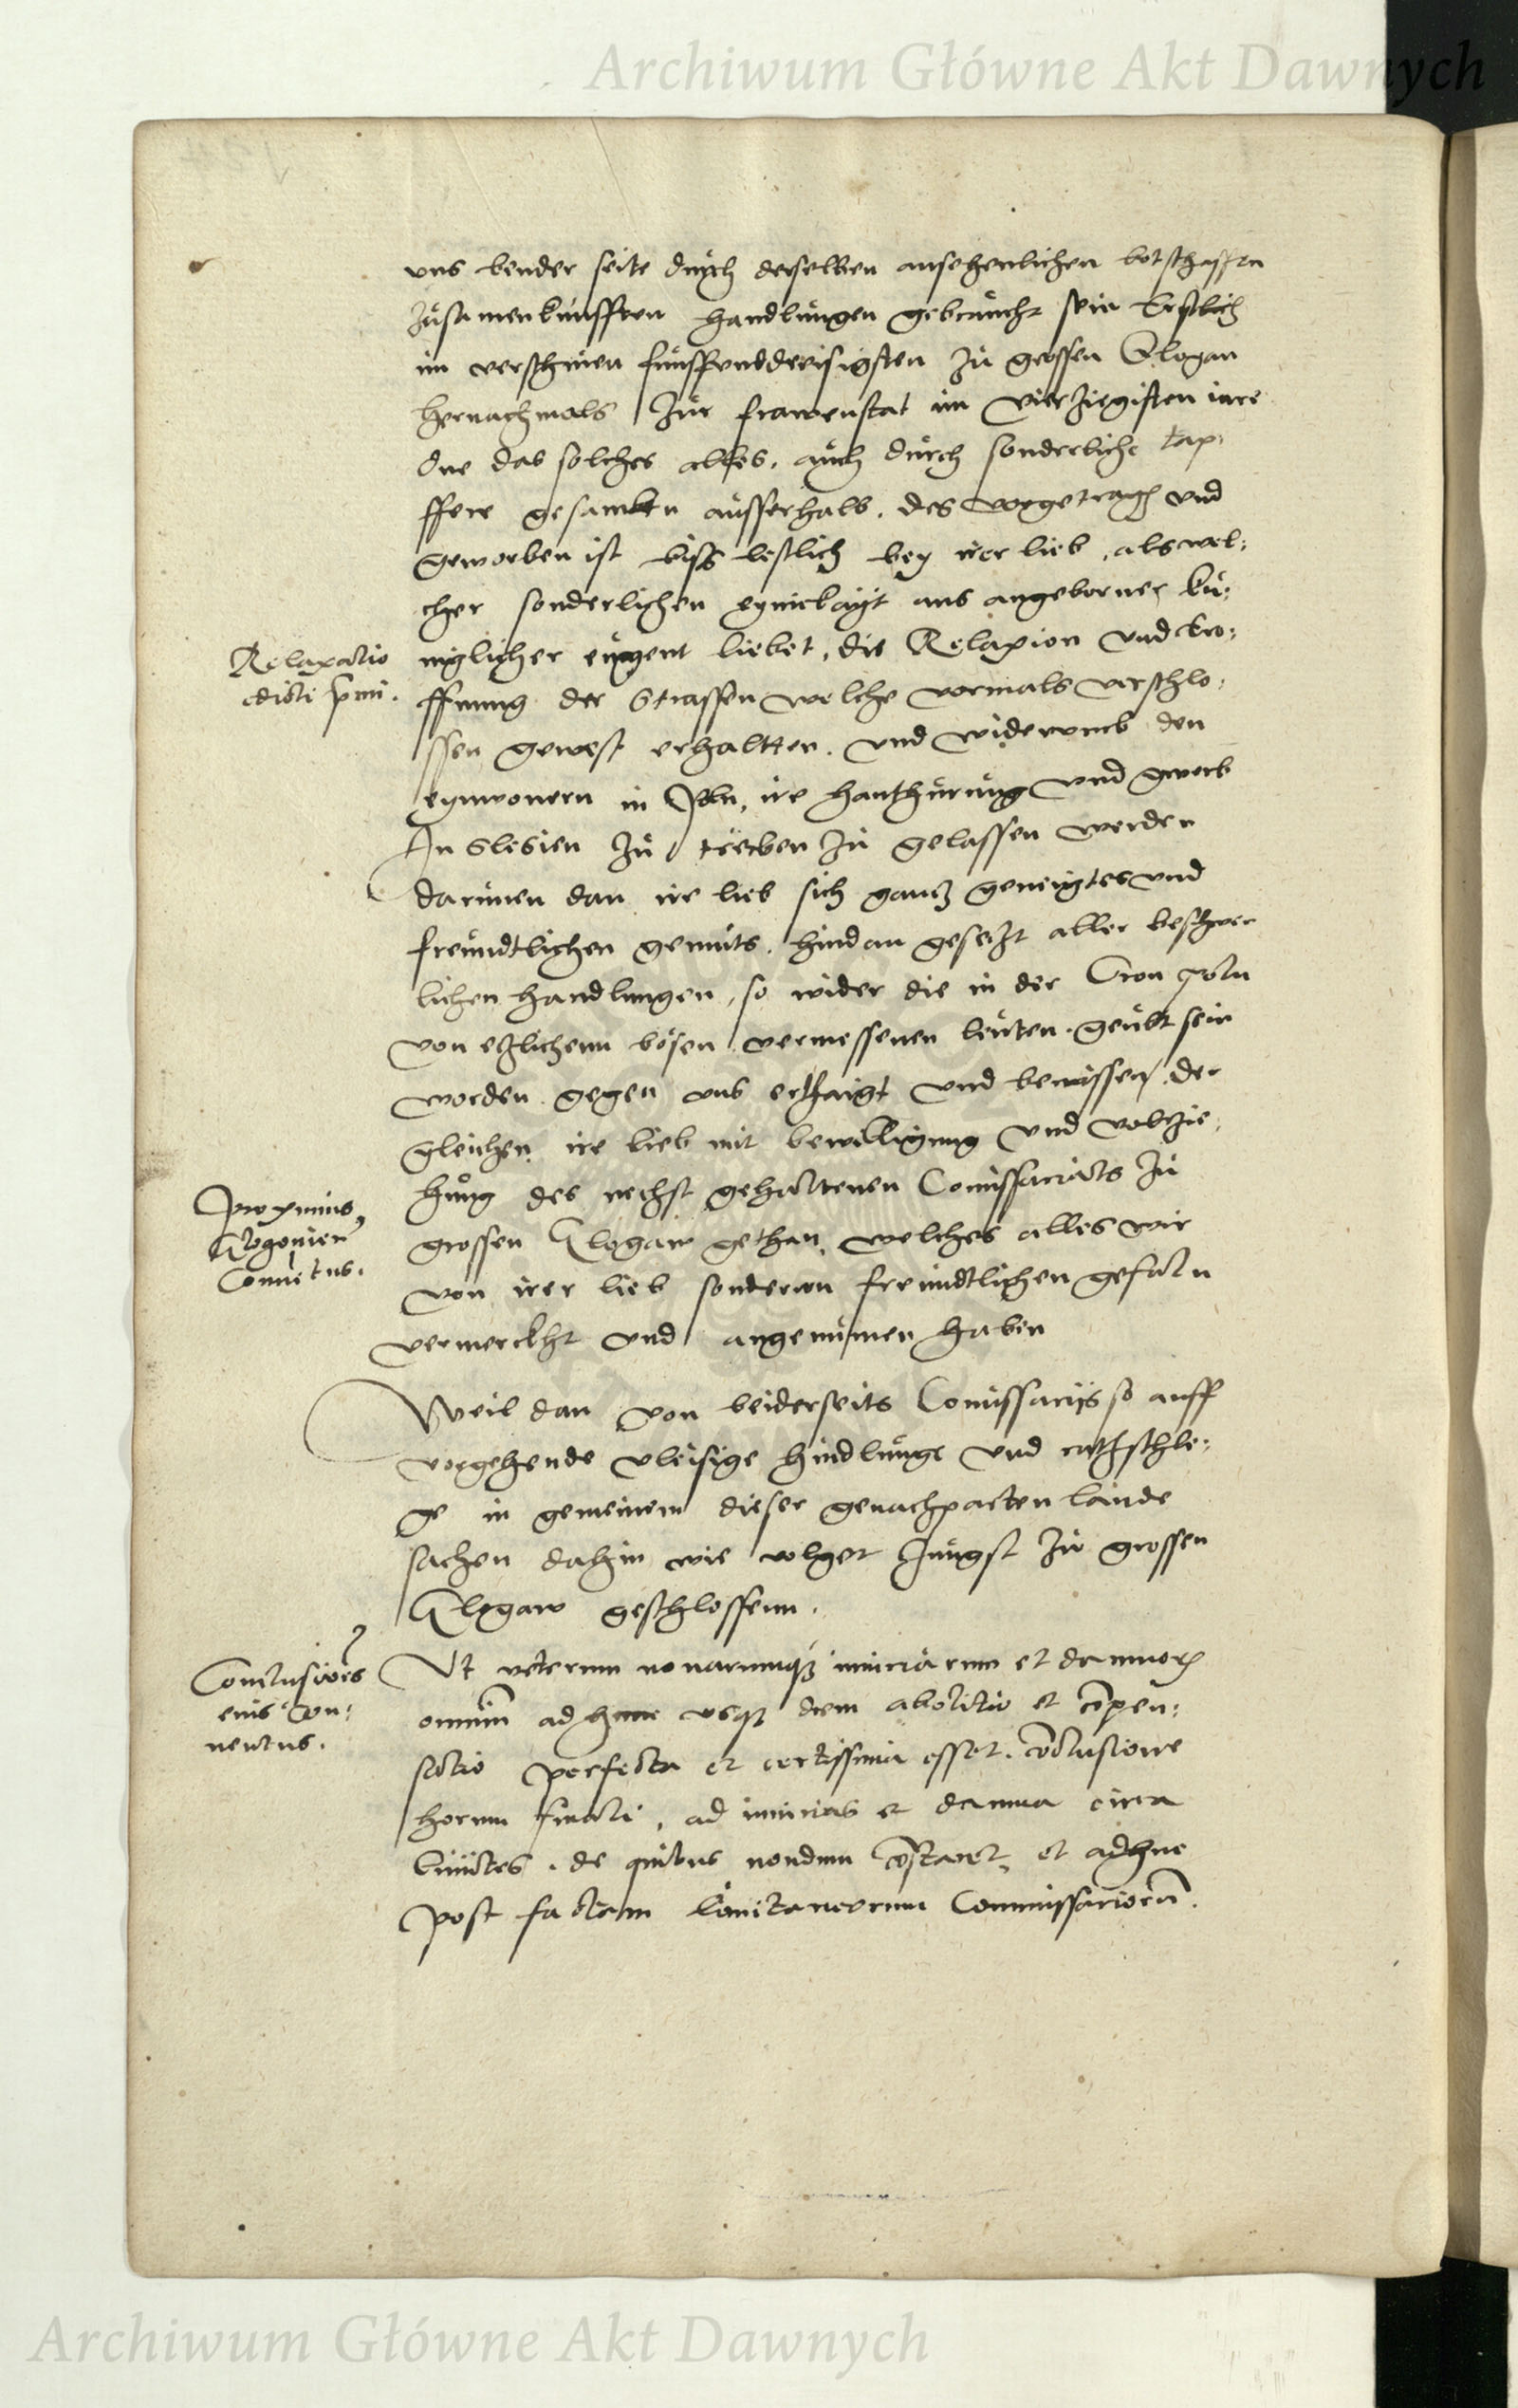 Archiwum Główne Akt Dawnych
vns bender seite durch derselben ansehenlichen botschafften
zusamenkunfften handlungen gebraucht sein Erstlich
im verschinen funffvnddreisigsten zu grossen Glogau
hernachmals zur frawenstat im vierzigisten iare
One das solches alles, auch durch sonderliche tap:
ffere gesandten ausserhalb, des vorgetragen vnd
geworben ist biss lestlich bey irer lieb, als wel:
cher sonderlichen eynickayt aus angeborner ku:
niglicher tugent liebet, die Relaxion vnd Ero:
Relaxatio
edicti
ffnung der Strassen welche vormals verschlo:
ssen gewest erhaltten, vnd widerumb den
eynwonern in Poln, ire hanthirung vnd gwerb
In Slesien zu treiben zu gelassen werden
darinnen dan ire lieb sich gantz geneigtes vnd
freundtlichen gemuts, hindan gesetzt aller beschwer
lichen handlungen, so wider die in der Cron Poln
von etzlichenn bösen vermessenen leuten geubt sein
worden gegen vns ertzaigt vnd bewissen, der
gleichen ire lieb mit bewilligung vnd volzie:
hung des nechst gehaltenen Comissariats zu
Proximus
Glogovien
Conuetus.
grossen Glogaw gethan, welches alles wir
von irer lieb sondernn freundtlichen gefaln
vermerckht vnd angenumen haben
Weil dan von beiderseits Comissarijs so auff
vorgehende vleisige handlunge vnd rathschle:
ge in gemeinem dieser genachparten lande
sachen dahin wie volget Jungst zu grossen
Glogaw geschlossenn.
Conclusiones
eius Con:
uentus.
Vt veterum nouarumque iniuriarum et damnorum
omnium ad hunc usque diem abolitio et compen:
satio perfecta et certissima esset, conclusione
horum finali, ad iniurias et damna circa
limites, de quibus nondum constaret, et adhuc
post factam limitaneorum Commissariorum.
Archiwum Główne Akt Dawnych